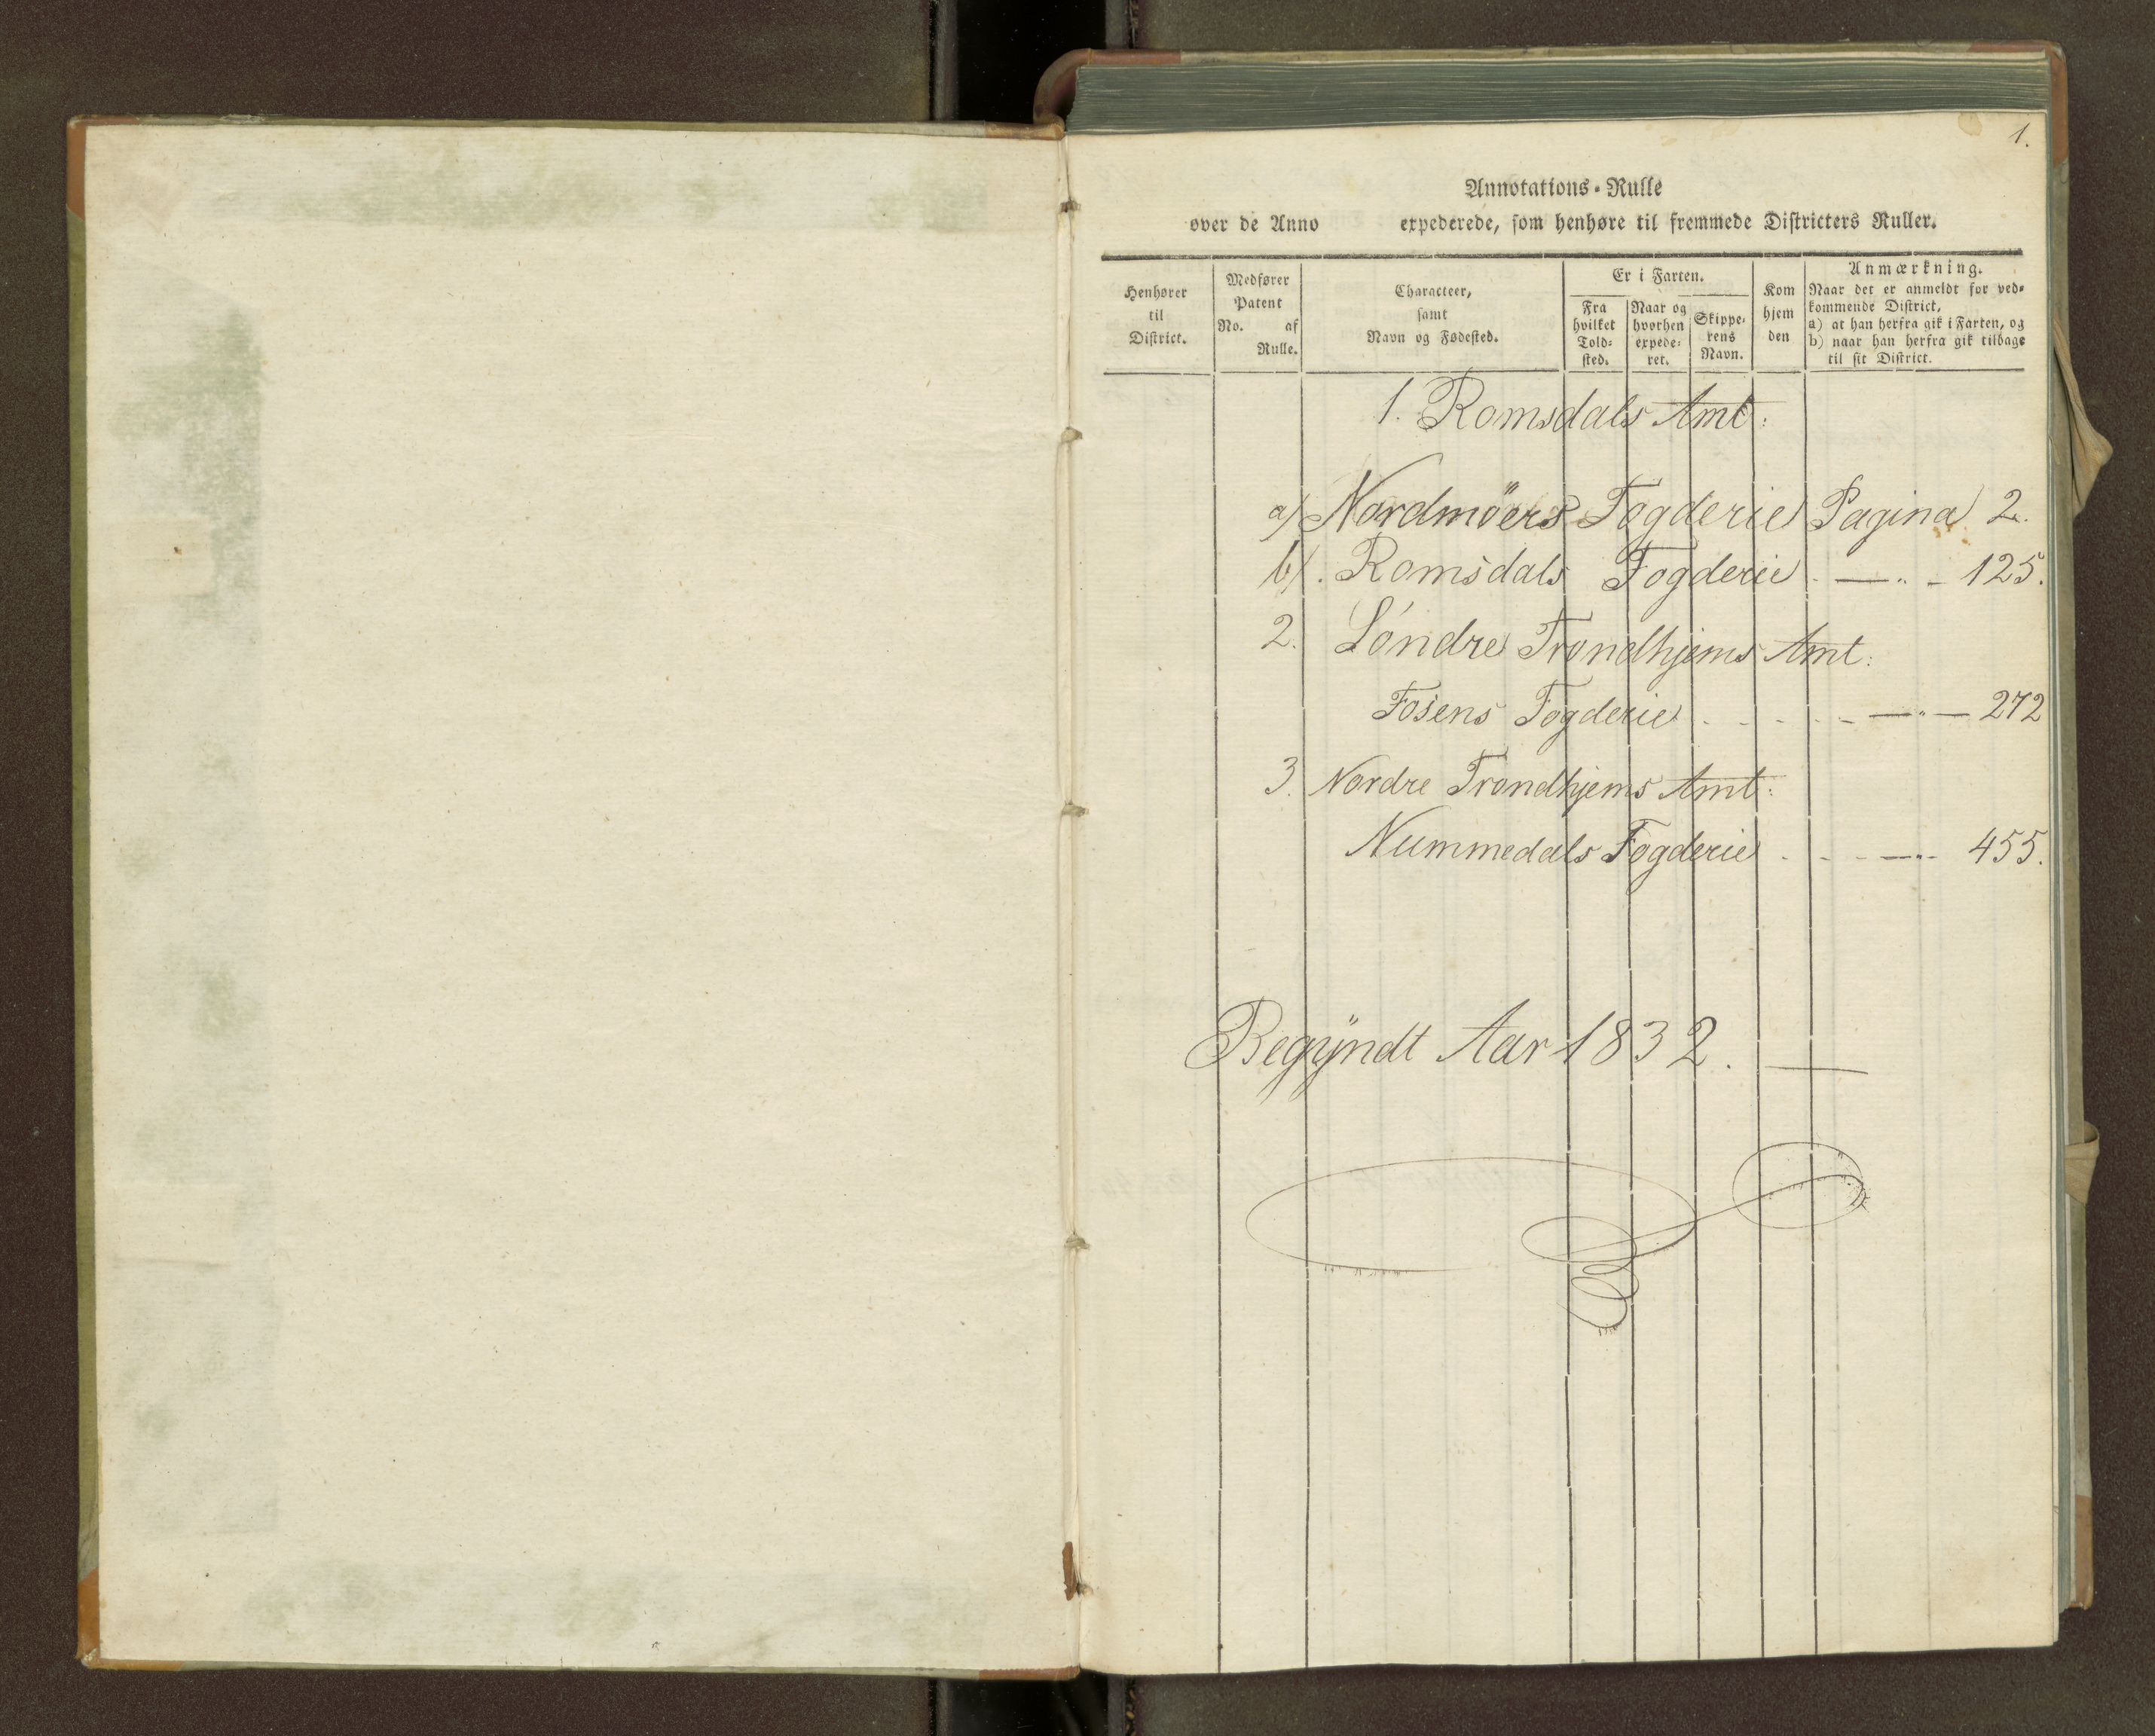 1.
Annotations-Rulle
over de Anno expederede, som henhøre til fremmede Districters Ruller.
Henhører
til
District.
Medfører
Patent
No. af
Rulle.
Characteer,
samt
Navn og Fødested.
Er i Farten.
Fra
hvilket
Told-
sted.
Naar og
hvorhen
expede-
ret.
Skippe-
rens
Navn.
Kom
hjem
den
Anmærkning.
Naar det er anmeldt for ved-
kommende District,
a) at han herfra gik i Farten, og
b) naar han herfra gik tilbage
til sit District.
1. Romsdals Amt:
a/ Nordmöers Fogderie Pagina 2.
b/. Romsdals Fogderie . — „ - 125.
2. Söndre Trondhjems Amt:
Fosens Fogderie . - - - - — „ — 272
3. Nordre Trondhjems Amt:
Nummedals Fogderie . - - — „ - 455.
Begÿndt Aar 1832.